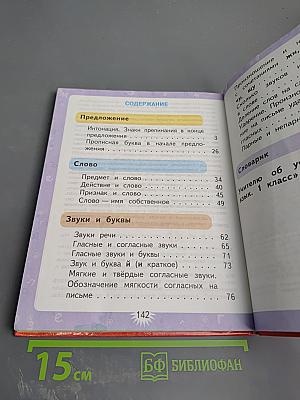 СОДЕРЖАНИЕ
Предложение
Интонация. Знаки препинания в конце
предложения 3
Прописная буква в начале предло-
жения 26
Слово
Предмет и слово 34
Действие и слово 40
Признак и слово 45
Слово — имя собственное 49
Звуки и буквы
Звуки речи 62
Гласные и согласные звуки 65
Гласные звуки и буквы 71
Звук и буква Й (и краткое) 73
Мягкие и твёрдые согласные звуки.
Обозначение мягкости согласных на
письме 76
142
Словарик
15 см
БФ БИБЛИОФАН